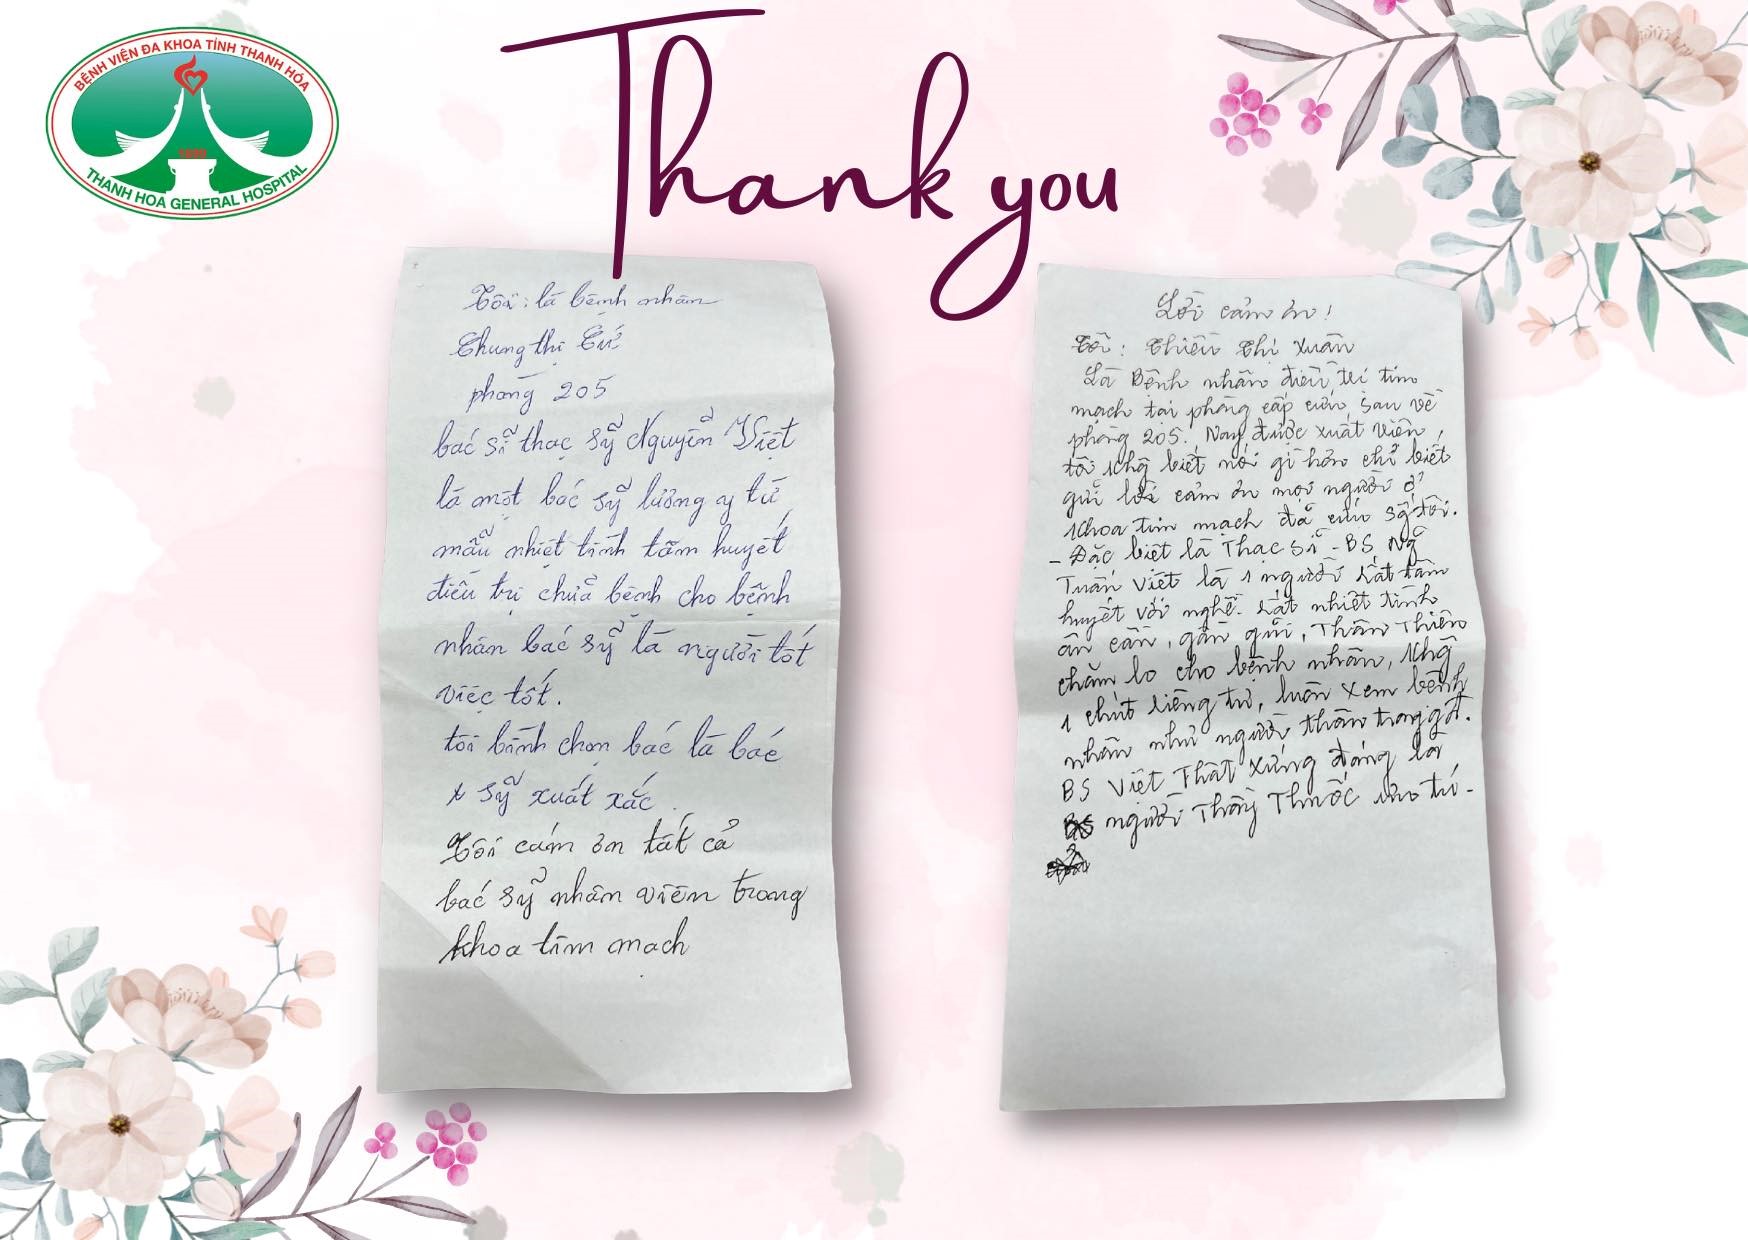 BỆNH VIỆN ĐA KHOA TỈNH THANH HÓA
1898
THANH HOA GENERAL HOSPITAL
Thank you
Tôi: là bệnh nhân
Chung thị Tứ
phòng 205
bác sĩ thạc sỹ Nguyễn Việt
là một bác sỹ lương y từ
mẫu nhiệt tình tâm huyết
điều trị chữa bệnh cho bệnh
nhân bác sỹ là người tốt
việc tốt.
tôi bình chọn bác là bác
sỹ xuất xắc.
Tôi cám ơn tất cả
bác sỹ nhân viên trong
khoa tim mạch
Lời cảm ơn!
Tôi: Thiều Thị Xuân
Là Bệnh nhân điều trị tim
mạch tại phòng cấp cứu, sau về
phòng 205. Nay được xuất viên,
tôi khg biết nói gì hơn chỉ biết
gửi lời cảm ơn mọi người ở
Khoa tim mạch đã cứu sg tôi.
- Đặc biệt là Thạc sĩ - BS Ng
Tuấn Việt là 1 người rất tâm
huyết với nghề. rất nhiệt tình
ân cần, gần gũi, Thân Thiện
chăm lo cho bệnh nhân, Khg
1 chút riêng tư, luôn xem bệnh
nhân như người thân trong gđ.
BS Việt Thật xứng đáng là
người Thầy Thuốc ưu tú -